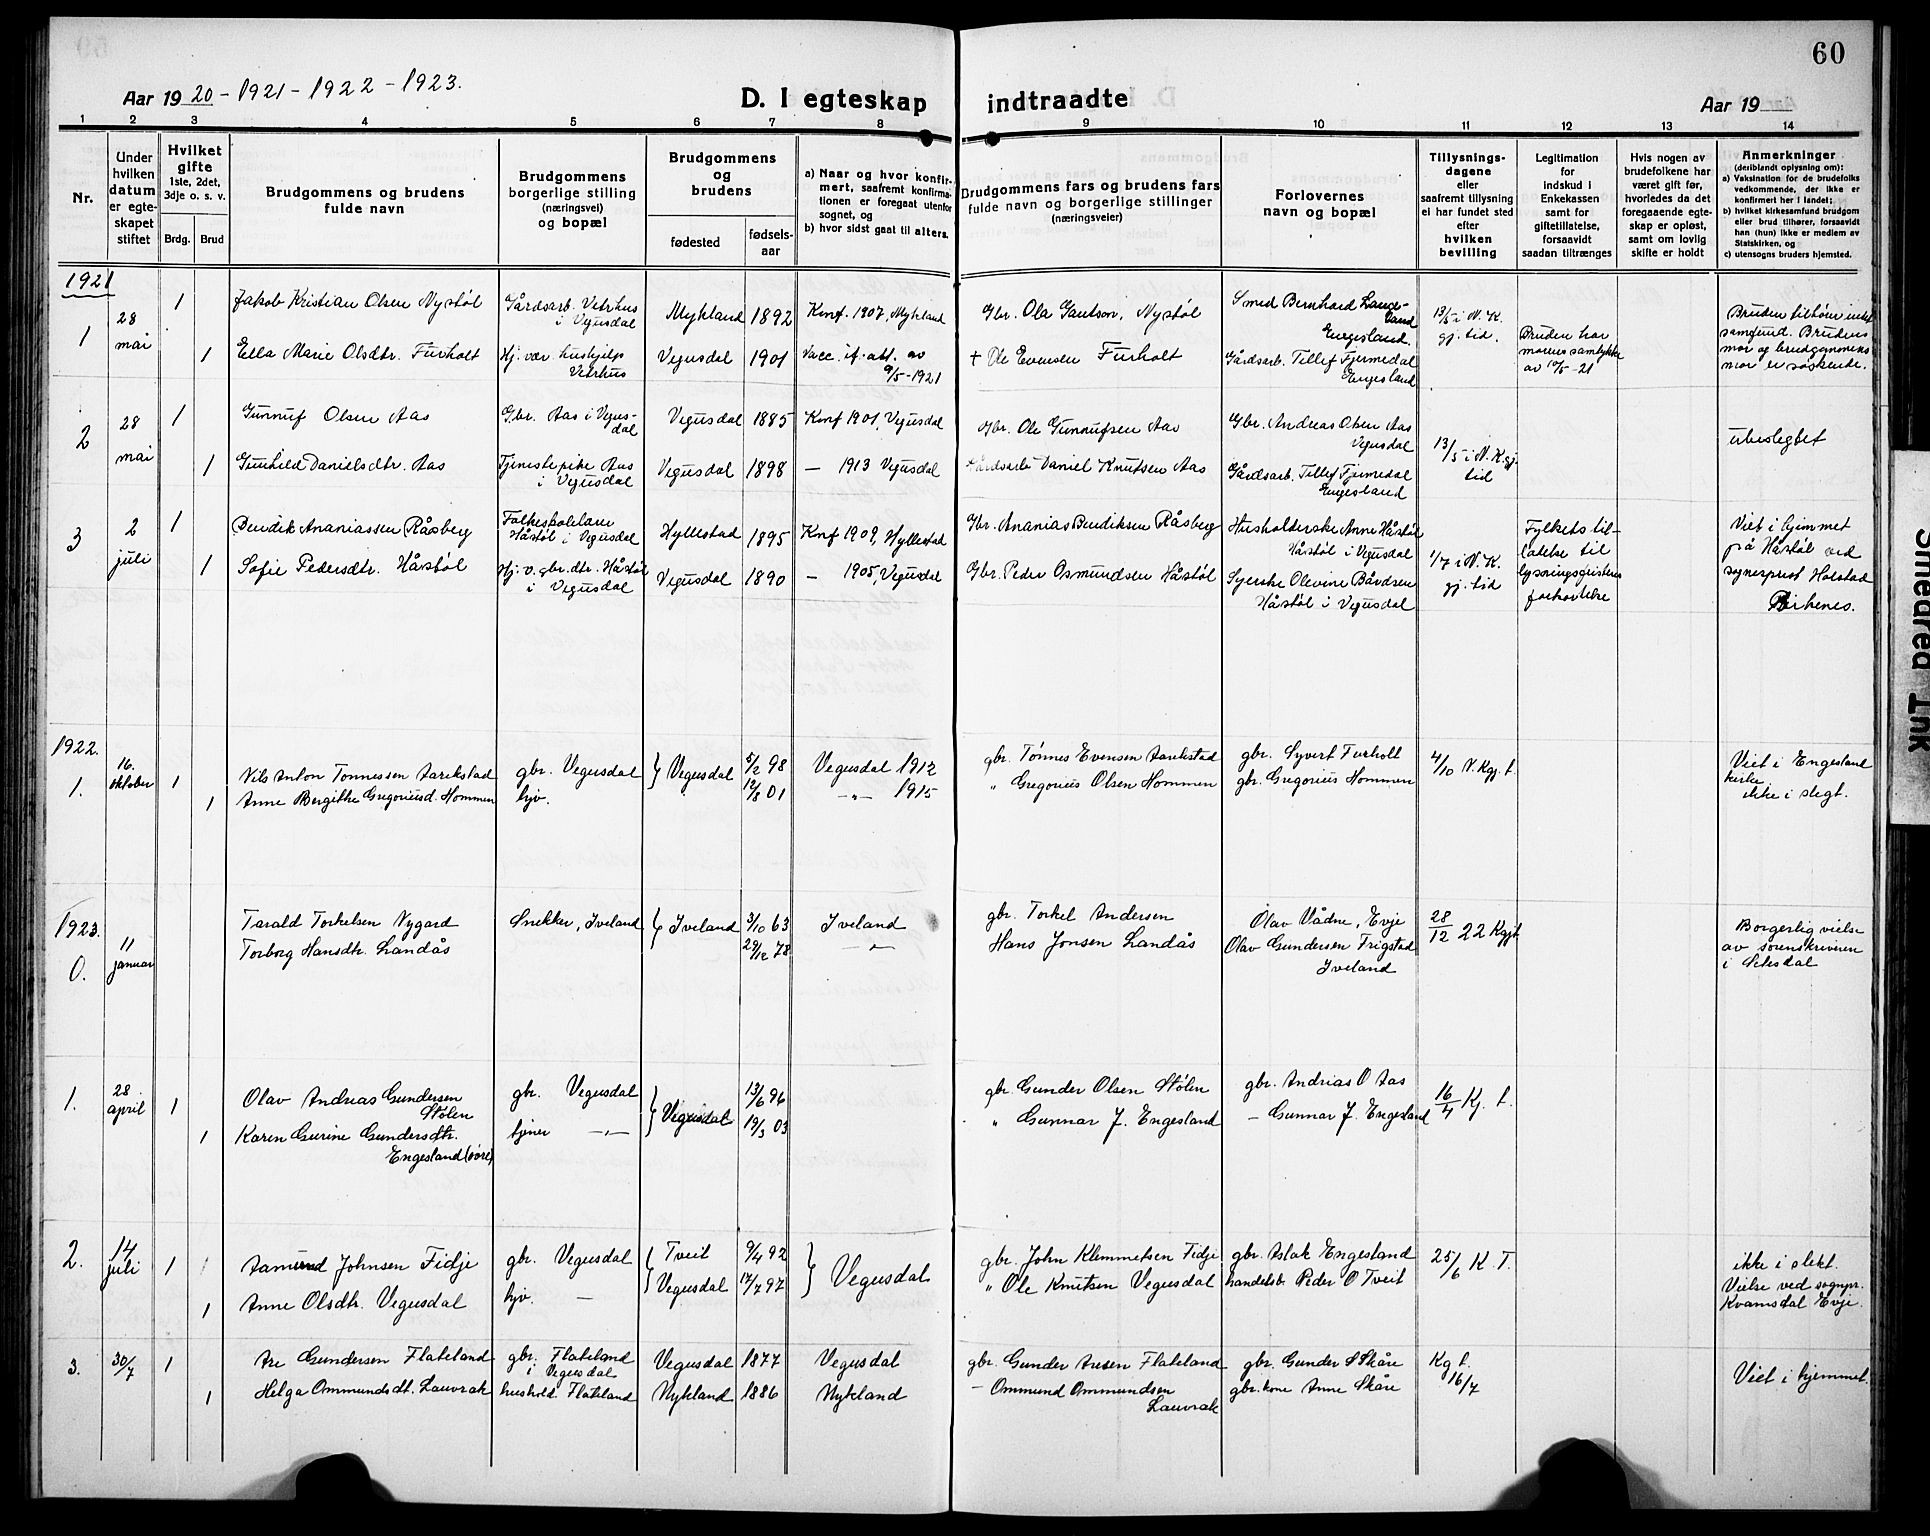 60
Aar 1920 - 1921 - 1922 - 1923.
D. I egteskap indtraadte
Aar 19
1 2 3 4 5 6 7 8 9 10 11 12 13 14
Nr.
Under hvilken datum er egteskapet stiftet
Hvilket gifte 1ste, 2det, 3dje o. s. v.
Brdg. Brud
Brudgommens og brudens fulde navn
Brudgommens borgerlige stilling (næringsvei) og bopæl
Brudgommens og brudens
fødested
fødselsaar
a) Naar og hvor konfirmert, saafremt konfirmationen er foregaat utenfor sognet, og
b) hvor sidst gaat til alters.
Brudgommens fars og brudens fars fulde navn og borgerlige stillinger (næringsveier)
Forlovernes navn og bopæl
Tillysningsdagene eller saafremt tillysning ei har fundet sted efter hvilken bevilling
Legitimation for indskud i Enkekassen samt for giftetillatelse, forsaavidt saadan tiltrænges
Hvis nogen av brudefolkene har været gift før, hvorledes da det foregaaende egteskap er opløst, samt om lovlig skifte er holdt
Anmerkninger (deriblandt oplysning om):
a) Vaksination for de brudefolks vedkommende, der ikke er konfirmert her i landet;
b) hvilket kirkesamfund brudgom eller brud tilhører, forsaavidt han (hun) ikke er medlem av Statskirken, og
c) utensogns bruders hjemsted.
1921
1 28 mai 1 Jakob Kristian Olsen Nystøl Gårdsarb. Vetrhus i Vegusdal Mykland 1892 Konf. 1907, Mykland Gbr. Ola Gautson, Nystøl Smed Bernhard Lauveland Engesland 13/5 i N. K. gj. tid. Bruden har morens samtykke av 10/5 -21
1 Ella Marie Olsdtr. Furholt Hj. vær. hushjelp Vetrhus Vegusdal 1901 Vacc. if. att. av 9/5 - 1921 + Ole Evensen Furholt Gårdsarb. Tellef Fjermedal Engesland
samfund. Brudens mor og brudgommens mor er søskende.
2 28 mai 1 Gunnuf Olsen Aas Gbr. Aas i Vegusdal Vegusdal 1885 Konf 1901, Vegusdal Gbr. Ole Gunnufsen Aas Gbr. Andreas Olsen Aas Vegusdal 13/5 i N. Kgj. tid ubeslegtet
1 Gunhild Danielsdtr. Aas Tjenestepike Aas i Vegusdal Vegusdal 1898 — 1913 Vegusdal Gårdsarb Daniel Knutsen Aas Gårdsarb. Tellef Fjermedal Engesland
3 2 juli 1 Bendik Ananiassen Råsberg Folkeskolelærer Håstøl i Vegusdal Hyllestad 1895 Konf 1909, Hyllestad Gbr. Ananias Bendiksen Råsberg Husholderske Anne Håstøl Håstøl i Vegusdal 1/7 i N. K. gj. tid Fylkets tillatelse til lysningsfristens forkortelse Viet i hjimmet på Håstøl ved sogneprest Holstad Birkenes.
1 Sofie Pedersdtr. Håstøl Hj. v. gbr. dtr. Håstøl i Vegusdal Vegusdal 1890 — 1905, Vegusdal Gbr. Peder Osmundsen Håstøl Syerske Olevine Bårdsen Håstøl i Vegusdal
1922.
1. 16. oktober 1 Nils Anton Tønnessen Aarikstad gbr. Vegusdal } Vegusdal 5/2 98 Vegusdal 1912 gbr. Tønnes Evensen Aarikstad gbr. Syvert Furholt 4/10 N. Kgj. t. Viet i Engesland kirke ikke i slegt.
1 Anne Bergithe Gregoriusd. Hommen hjv. 12/8 01 -"- 1915 " Gregorius Olsen Hommen gbr. Gregorius Hommen
1923.
0. 11 januar Tarald Torkelsen Nygard Snekker, Iveland { Iveland 3/10 63 Iveland gbr. Torkel Andersen Olav Vådne, Evje 28/12 22 Kgjt Borgerlig vielse av sorenskriveren i Setesdal
Torborg Hansdtr. Landås 22/12 78 -"- Hans Jonsen Landås Olav Gundersen Frigstad Iveland
1. 28 april 1 Olav Andreas Gundersen Stølen gbr. Vegusdal } Vegusdal 13/6 96 gbr. Gunder Olsen Stølen gbr. Andrias O Aas 16/4 Kj. t.
1 Karen Gurine Gundersdtr. Engesland (øvre) tjener -"- 19/3 03 " Gunnar J. Engesland — Gunnar J. Engesland
2. 14 juli 1 Aamund Johnsen Fidje gbr. Vegusdal { Tveit 9/4 92 } Vegusdal gbr. John Klemmetsen Fidje gbr. Aslak Engesland 25/6 K. T. ikke i slekt. Vielse ved sognpr. Kvamsdal Evje.
1 Anne Olsdtr. Vegusdal hjv. — Vegusdal 17/7 97 " Ole Knutsen Vegusdal handelsb. Peder O Tveit
3. 30/7 1 Are Gundersen Flateland gbr. Flateland i Vegusdal Vegusdal 1877 Vegusdal gbr. Gunder Aresen Flateland gbr. Gunder S Skåre Kg t. 16/7 Viet i hjemmet.
1 Helga Ommundsdt. Lauvrak hushold. Flateland Mykland 1886 Mykland — Ommund Ommundsen Lauvrak gbr. kone Anne Skåre
Smeared Ink